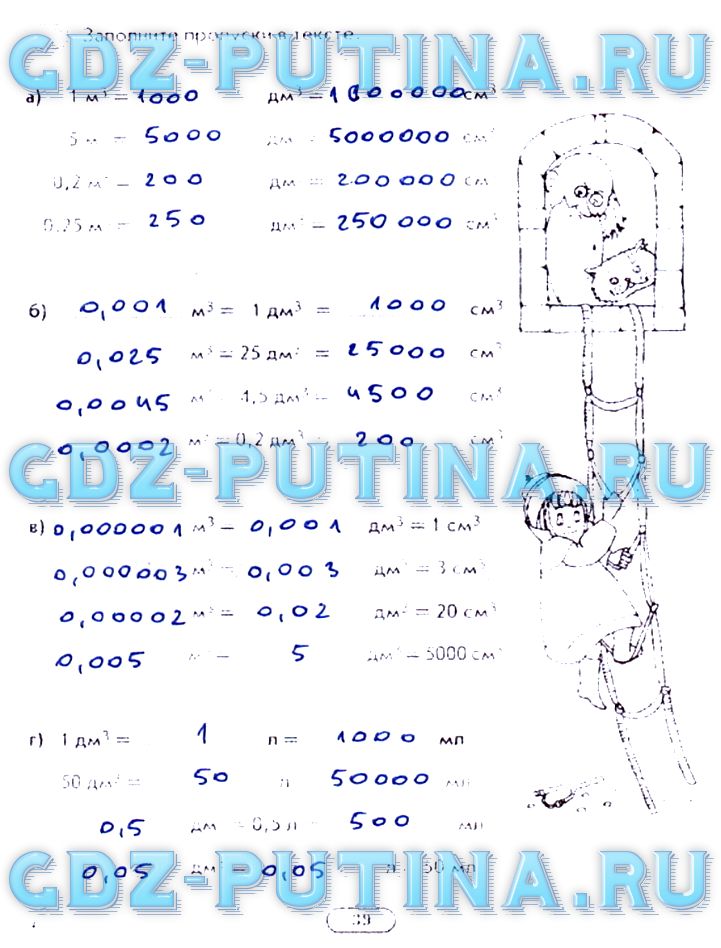 Заполните пропуски в тексте.
GDZ-PUTINA.RU
а) 1 м³ = 1000 дм³ = 1000000 см³
5 м = 5000 дм = 5000000 см³
0,2 м³ = 200 дм = 200000 см
0,25 м = 250 дм³ = 250 000 см³
б) 0,001 м³ = 1 дм³ = 1000 см³
0,025 м³ = 25 дм³ = 25000 см³
0,0045 м³ = 4,5 дм³ = 4500 см³
0,0002 м³ = 0,2 дм³ = 200 см³
GDZ-PUTINA.RU
в) 0,000001 м³ = 0,001 дм³ = 1 см³
0,000003 м³ = 0,003 дм³ = 3 см³
0,00002 м³ = 0,02 дм³ = 20 см³
0,005 м³ = 5 дм³ = 5000 см³
г) 1 дм³ = 1 л = 1000 мл
50 дм³ = 50 л 50000 мл
0,5 дм = 0,5 л = 500 мл
0,05 дм³ = 0,05 л = 50 мл
GDZ-PUTINA.RU
39